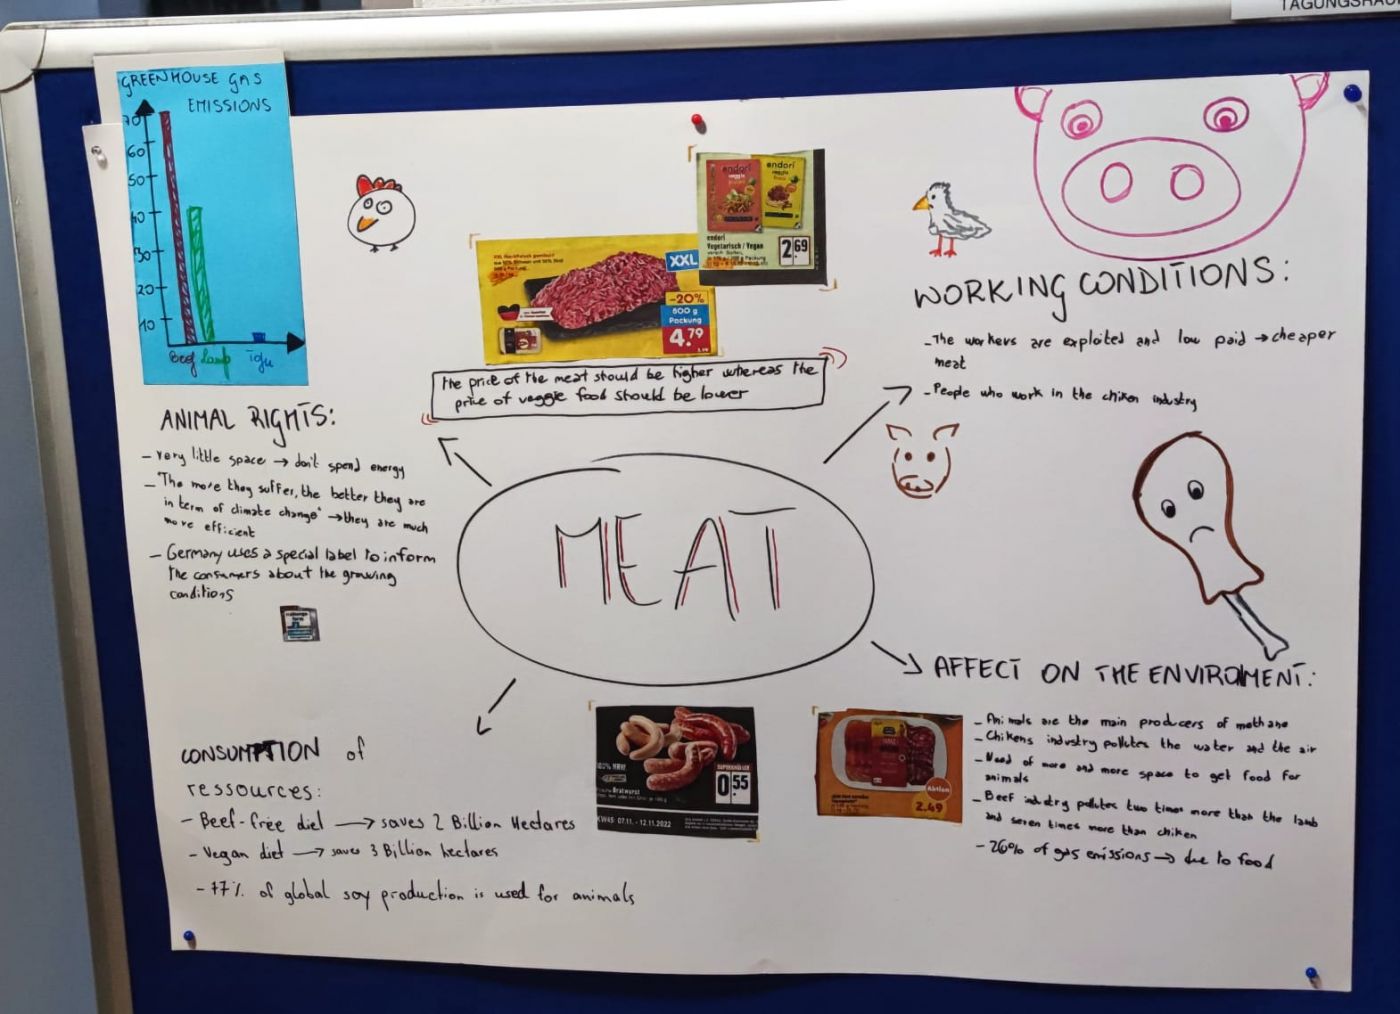 TAGUNGSRAU
GREENHOUSE GAS
EMISSIONS
70
60
50
40
30
20
10
Beef Lamb Tofu
endori
veggie
endori
veggie
endori
Vegetarisch / Vegan
2 69
XXL
-20%
500 g
Packung
4.79
the price of the meat should be higher whereas the
price of veggie food should be lower
WORKING CONDITIONS:
- The workers are exploited and low paid → cheaper
meat
- People who work in the chiken industry
ANIMAL RIGHTS:
- very little space → don't spend energy
- "The more they suffer, the better they are
in term of climate change" → they are much
more efficient
- Germany uses a special label to inform
the consumers about the growing
conditions
MEAT
AFFECT ON THE ENVIROMENT:
- Animals are the main producers of methane
- Chikens industry pollutes the water and the air
- Need of more and more space to get food for
animals
- Beef industry pollutes two times more than the lamb
and seven times more than chiken
- 26% of gas emissions → due to food
CONSUMPTION of
ressources:
- Beef-free diet → saves 2 Billion Hectares
- Vegan diet → saves 3 Billion hectares
- 77% of global soy production is used for animals
Bratwurst
SUPERKNÜLLER
0 55
KW45 07.11. - 12.11.2022
Aktion
2.49